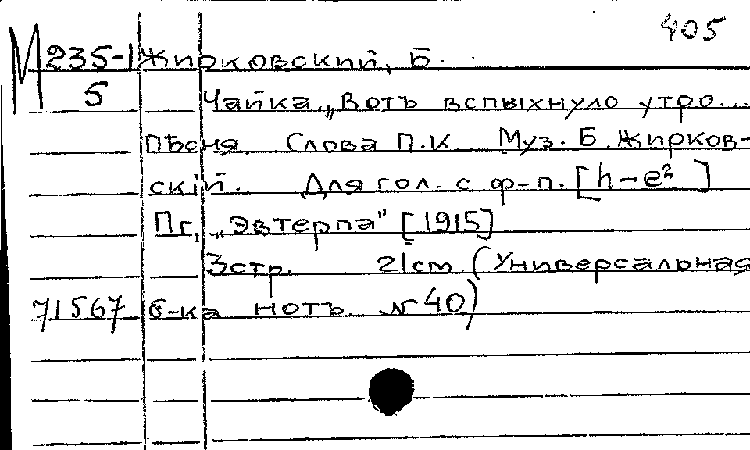 405
М 235-1 Жирковский, Б.
5 Чайка „Вотъ вспыхнуло утро...
Пѣсня. Слова П.К. Муз. Б. Жирков-
скій. Для гол. с ф-п. [h-e²]
Пг, „Эвтерпа" [1915]
3стр. 21см (Универсальная
71567 б-ка нотъ. № 40)